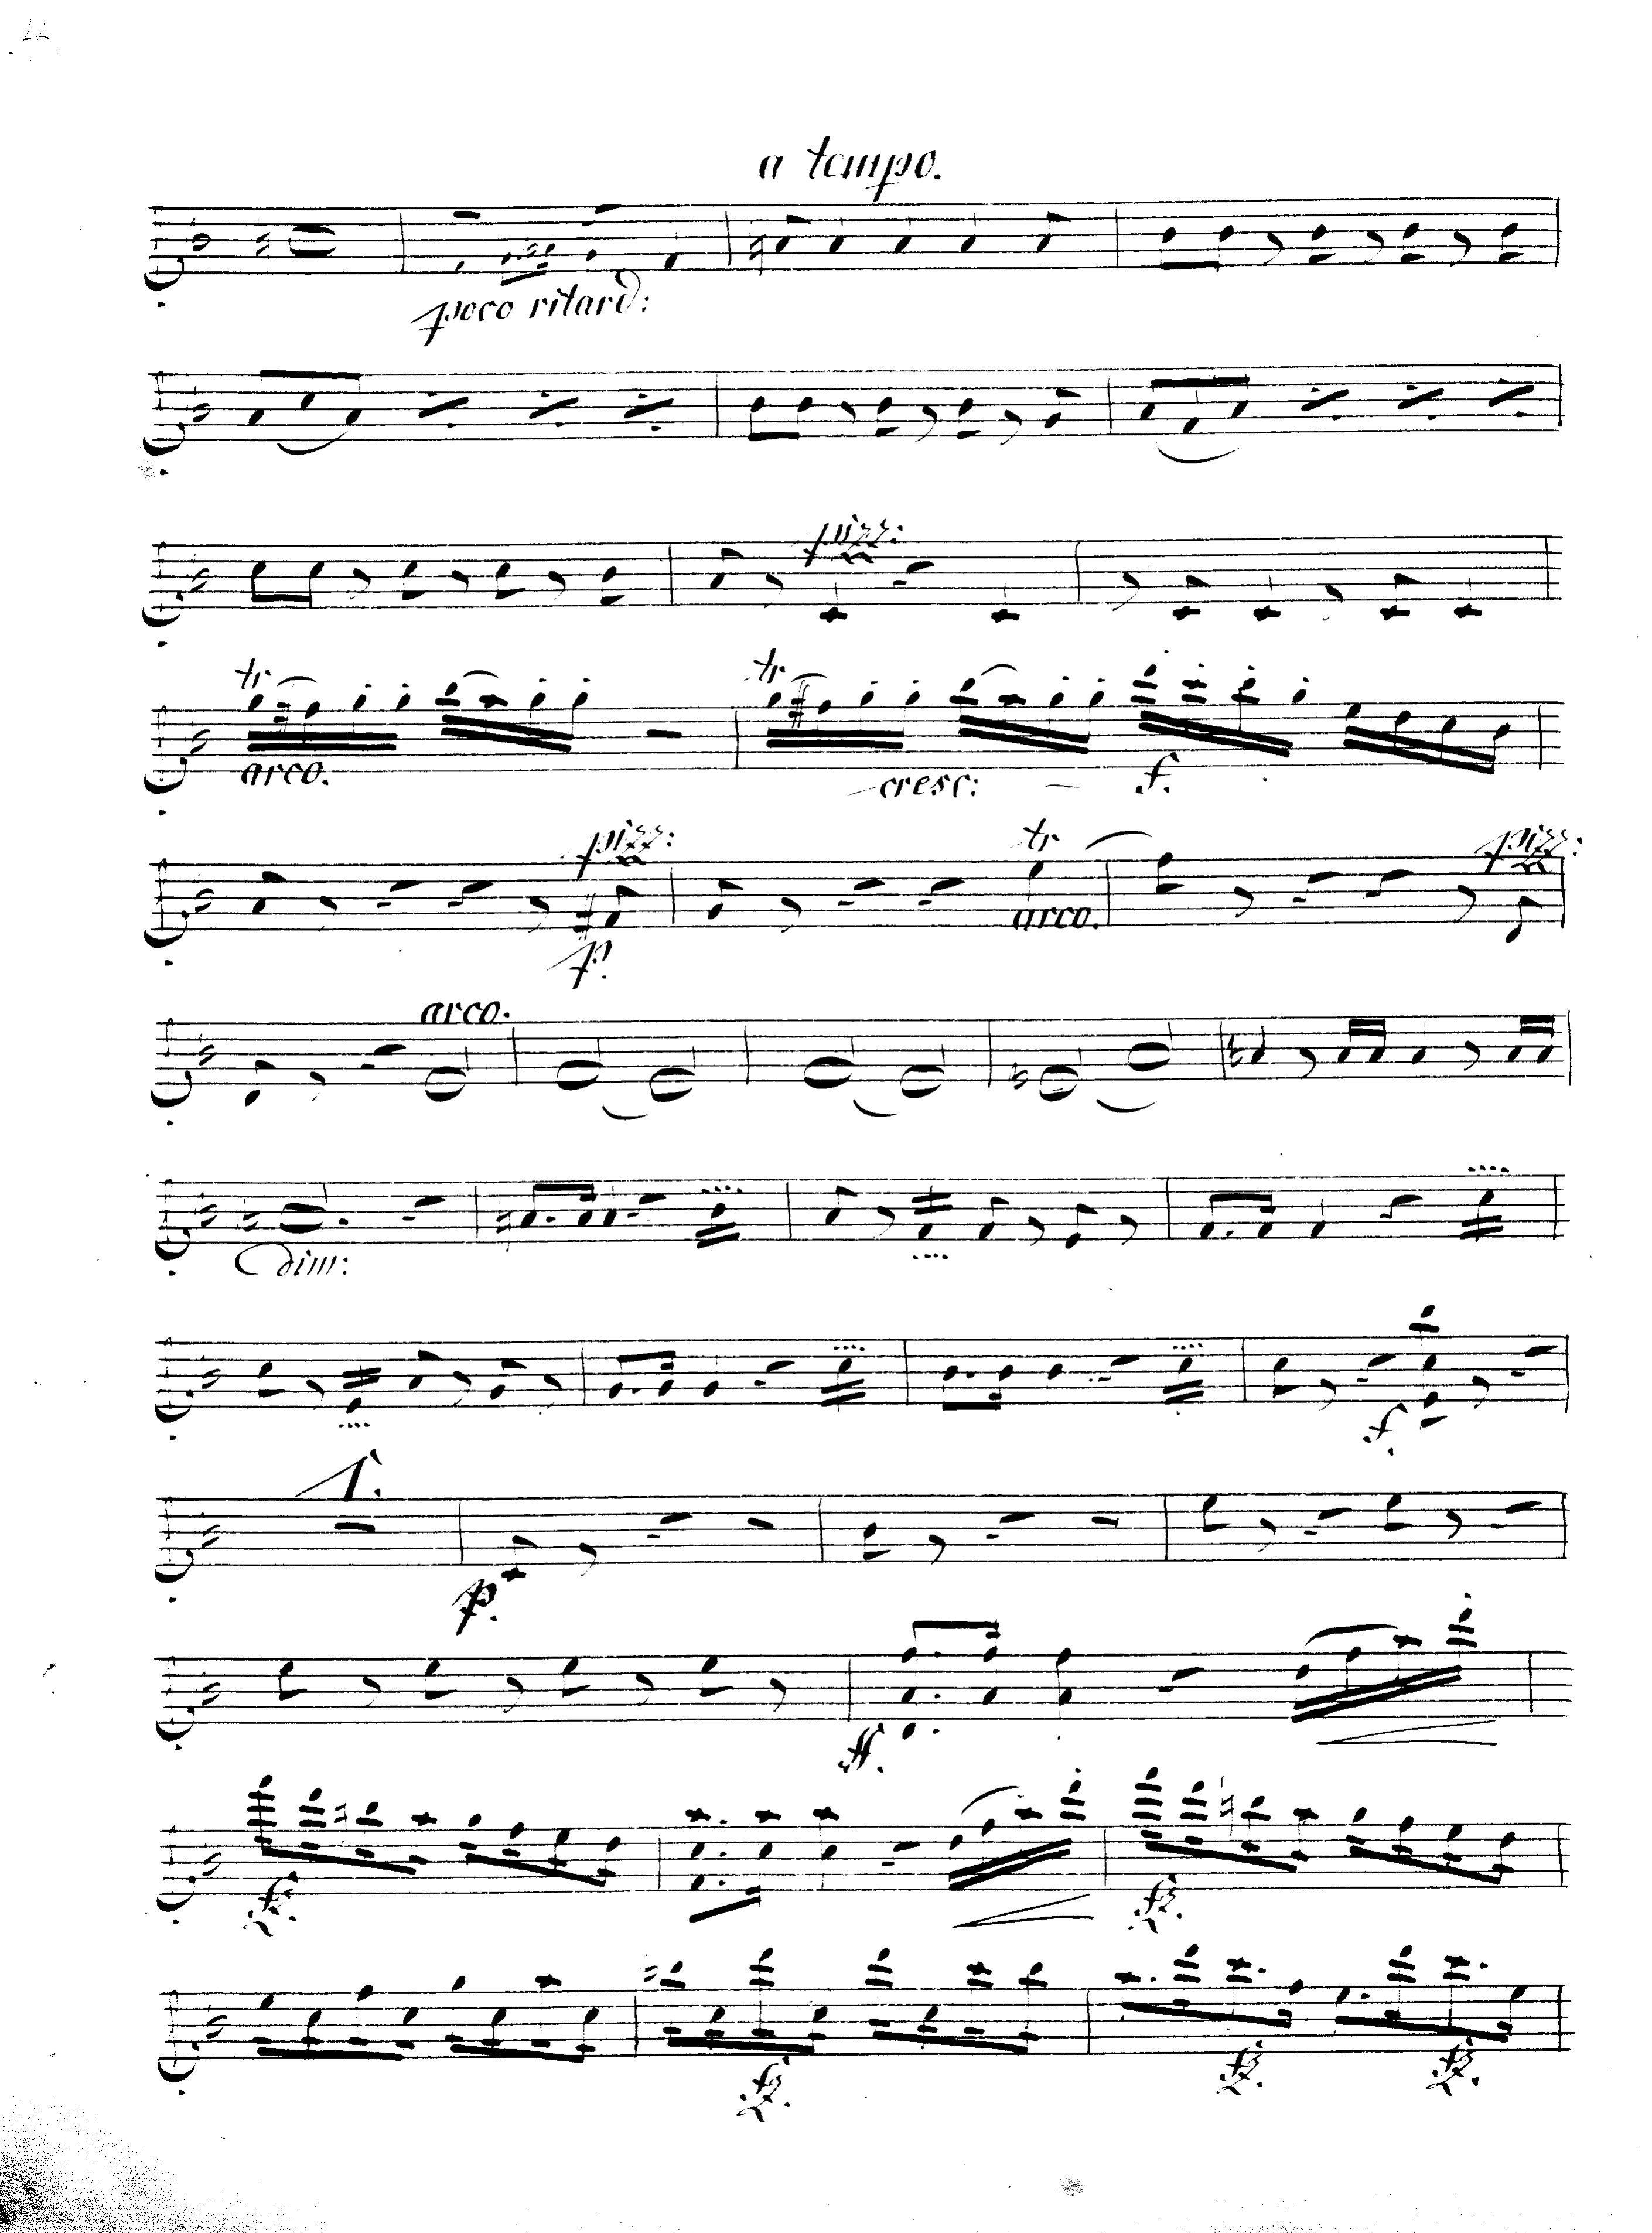 a tempo.
poco ritard:
pizz:
tr tr
arco. cresc: f.
pizz: tr pizz:
p. arco.
arco.
dim:
f.
1.
p.
ff.
fz. fz.
fz. fz. fz.